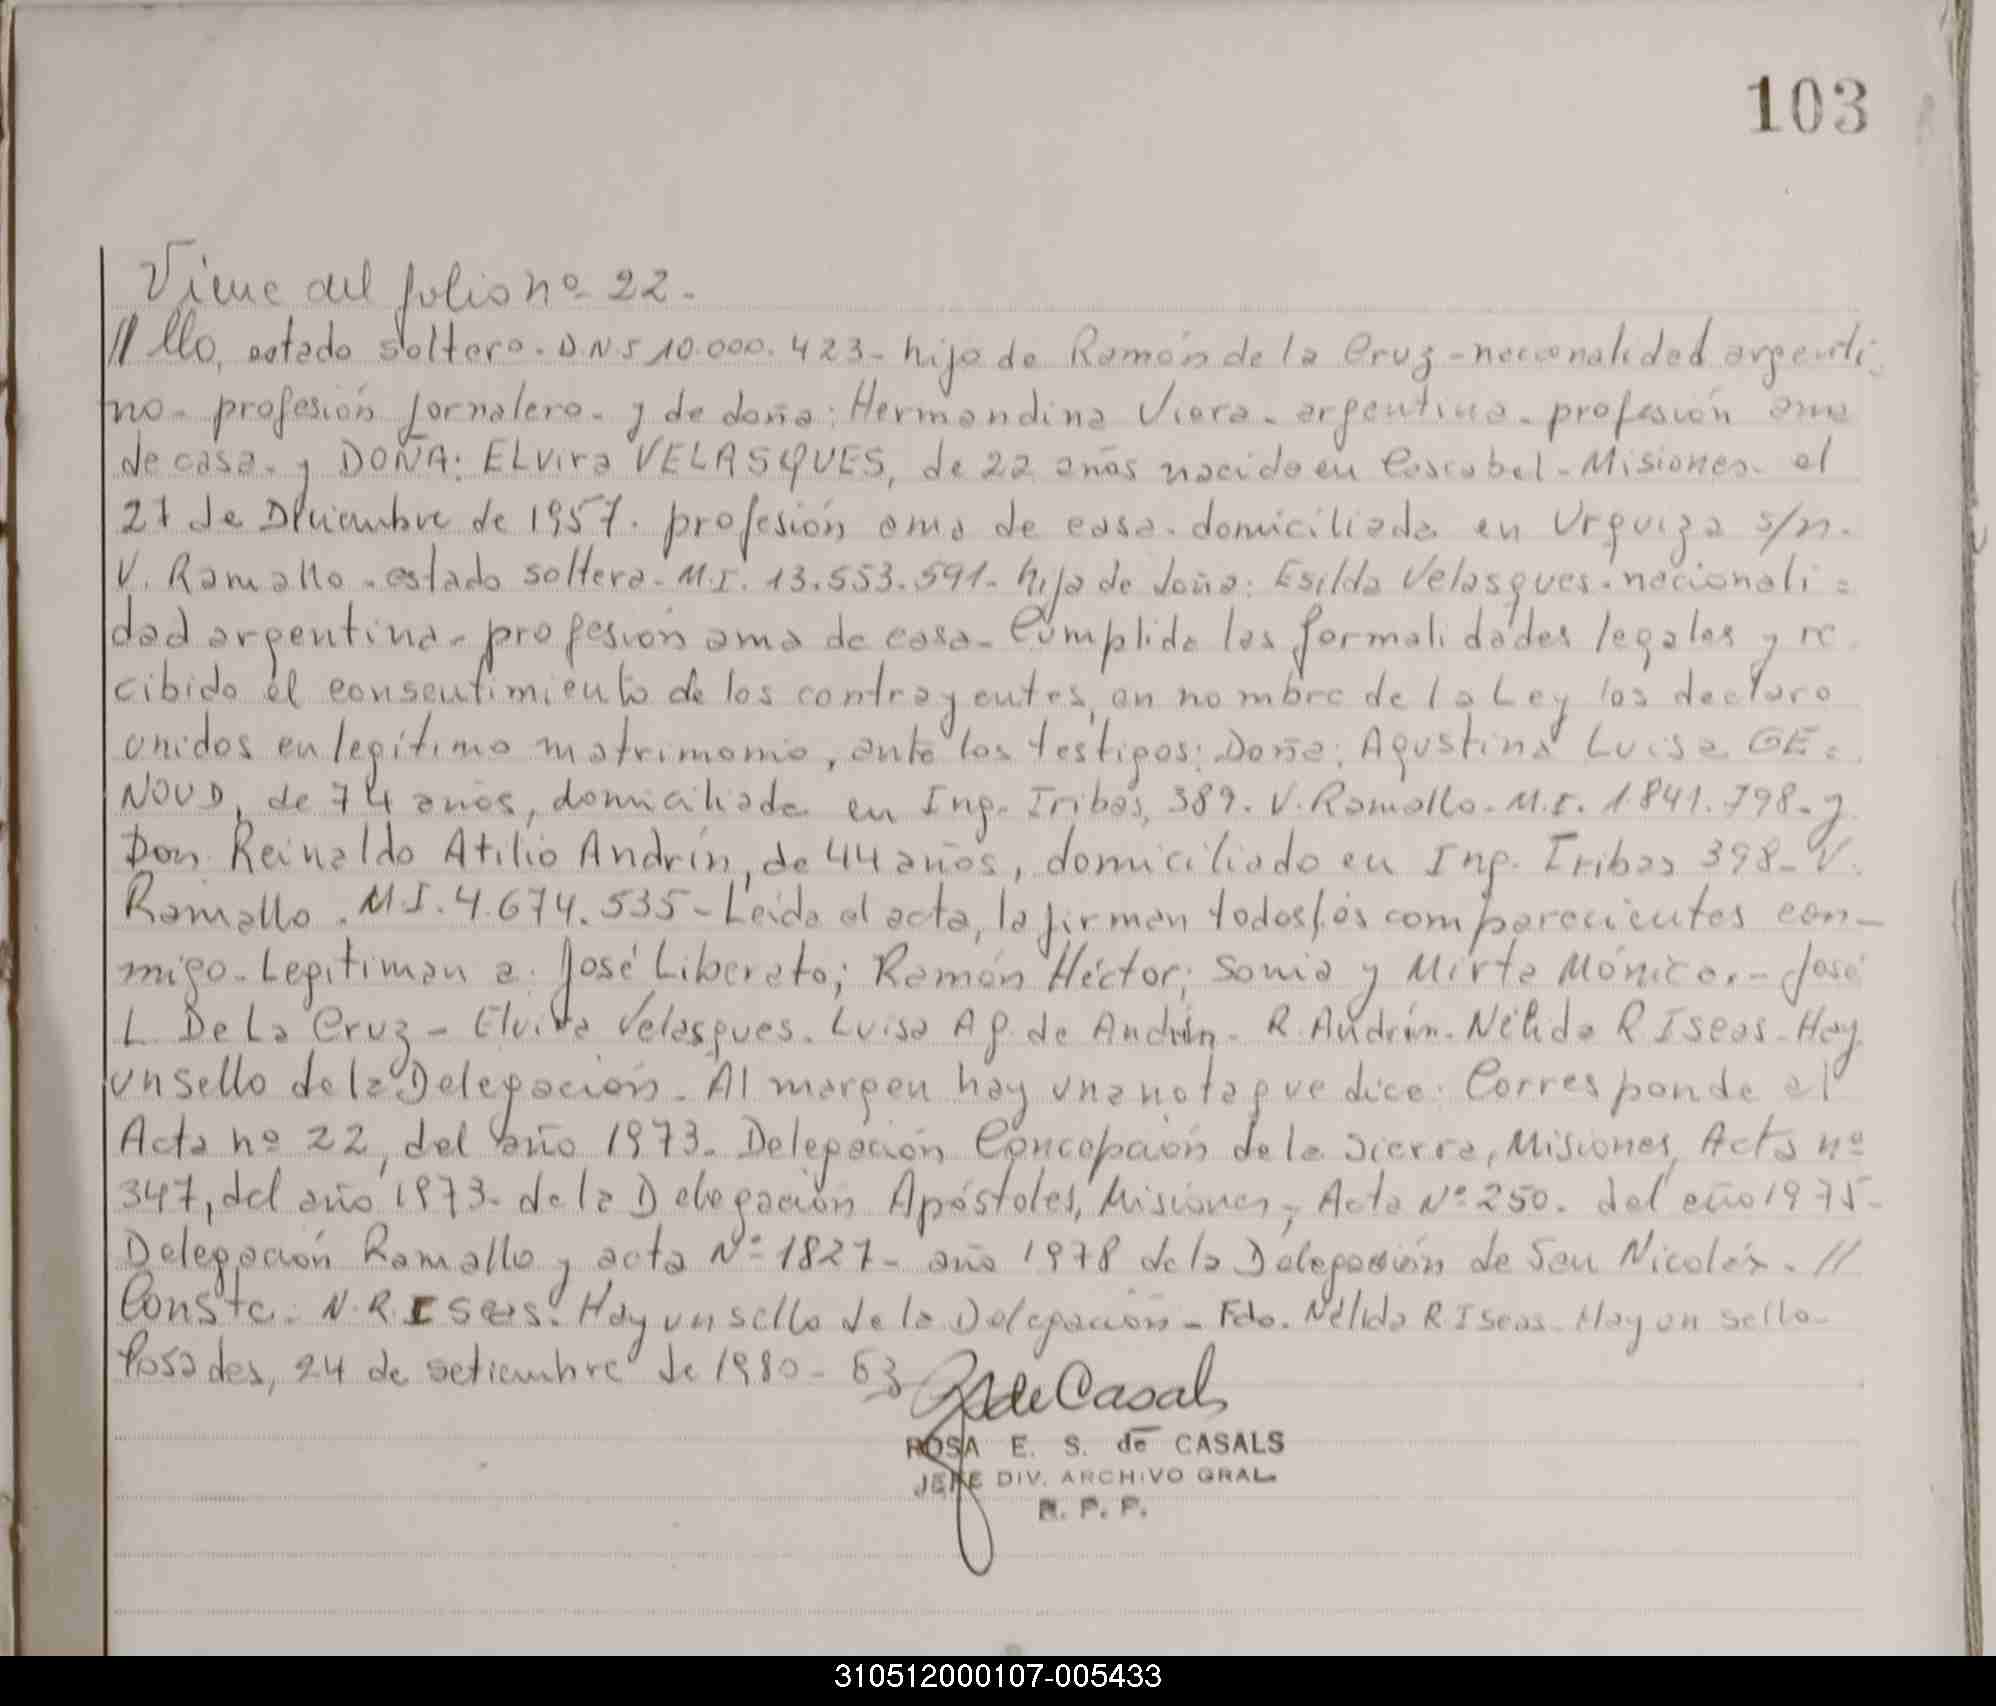 103
Viene del folio nº 22.
// llo, estado soltero. D.N.I 10.000.423- hijo de Ramón de la Cruz - nacionalidad argenti=
no- profesión Jornalero- y de doña: Hermandina Viera- argentina- profesión ama
de casa- y DOÑA: ELvira VELASQUES, de 22 años nacida en Cascabel- Misiones- el
27 de Diciembre de 1957. profesión ama de casa- domiciliada en Urquiza s/n.
V. Ramallo - estado soltera- M.I. 13.553.591- hija de doña: Esilda Velasques- nacionali=
dad argentina- profesión ama de casa- Cumplida las formalidades legales y re
cibido el consentimiento de los contrayentes, en nombre de la Ley los declaro
unidos en legítimo matrimonio, ante los testigos: Doña: Agustina Luisa GE=
NOUD, de 74 años, domiciliada en Ing. Iribas, 389. V. Ramallo- M.I. 1.841.798- y
Don Reinaldo Atilio Andrín, de 44 años, domiciliado en Ing. Iribas 398- V.
Ramallo. M.I. 4.674.535- Leida el acta, la firman todos los comparecientes con-
migo- Legitiman a: José Liberato; Ramón Héctor; Sonia y Mirta Mónica.- José
L. De La Cruz - Elvira Velasques. Luisa A g. de Andrín- R. Andrín. Nélida R Iseas- Hay
un sello de la Delegación. Al margen hay una nota que dice: Corresponde al
Acta nº 22, del año 1973- Delegación Concepción de la Sierra, Misiones, Acta nº
347, del año 1973- de la Delegación Apóstoles, Misiones; Acta Nº 250. del año 1975-
Delegación Ramallo y acta Nº 1827- año 1978 de la Delegación de San Nicolás. //
Conste. N. R. Iseas. Hay un sello de la Delegación- Fdo. Nélida R Iseas- Hay un sello-
Posades, 24 de setiembre de 1980-
de Casals
ROSA E. S. de CASALS
JEFE DIV. ARCHIVO GRAL.
R. P. P.
310512000107-005433